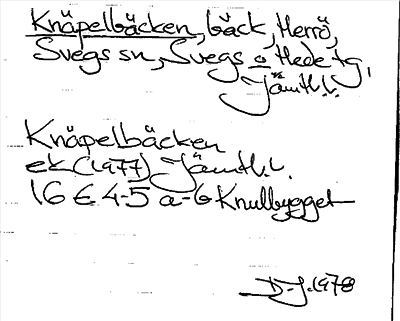 Knäpelbäcken, bäck, Herrö,
Svegs sn, Svegs o Hede tg,
Jämtl.l.
Knäpelbäcken
ek (1977) Jämtl.l.
16 E 4-5 a-b Knullbygget
D.J. 1978